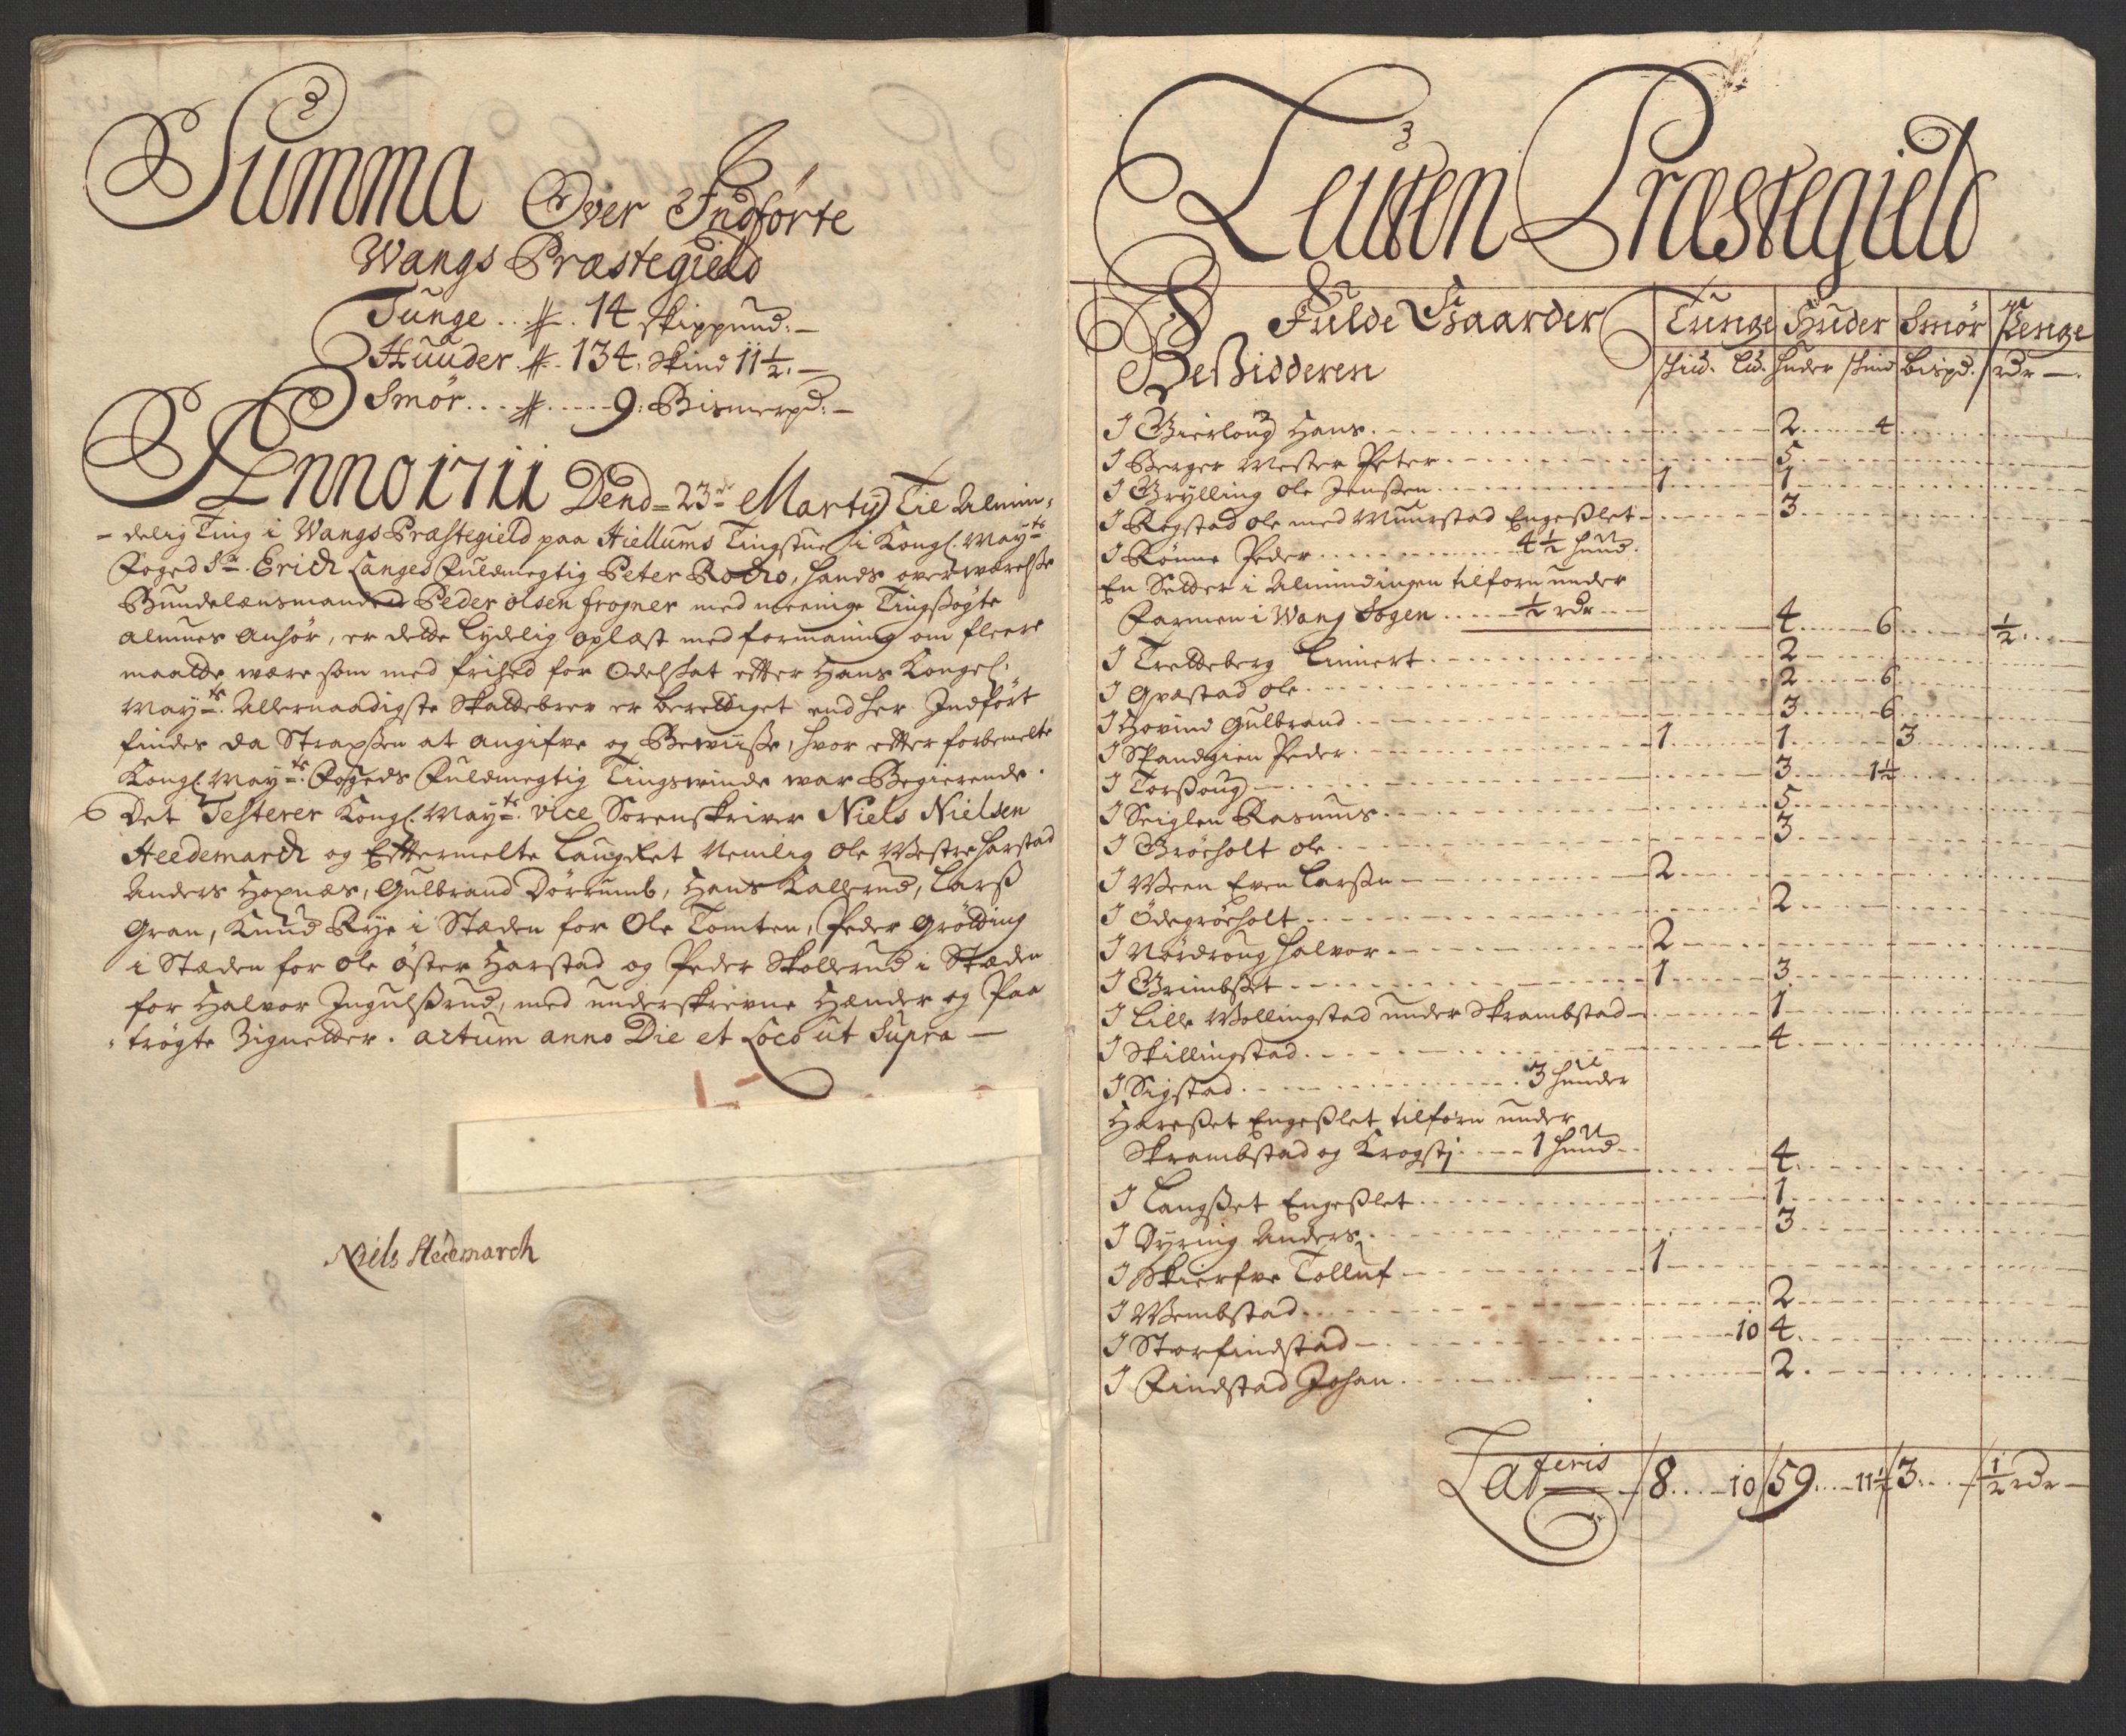 Summa Over Indførte
Wangs Præstegield
Tunge .. # . 14 skippund: —
Huuder . # . 134. Skind 11½. —
Smør .... # ..... 9: Bismerpd: —
Anno 1711 Dend = 23de Martij Til Almin=
= delig Ting i Wangs Præstegield paa Hiellums Tingstue i Kongl. Mayts
Foged Sr. Erich Langes Fuldmegtig Peter Rodio, hands overwærelse
Bundelænsmanden Peder Olsen Frogner med meenige Tingsøgte
Almues Anhør, er dette lydelig oplæst med formaning om fleere
maatte være som med frihed for Odelskat efter Hans Kongel:
Mayts. Allernaadigste Skattebrev er berettiget end her Indført
findes da Straxsen at angifve og Bewiisse, hvor efter forbemelte
Kongl. Mayts. Fogeds Fuldmegtig Tingswinde war Begierende.
Det Testerer Kongl. Mayts. vice Sorenskriver Niels Nielsen
Heedemarch og Eftermelte Laugret Nemlig Ole Westre Harstad
Anders Hopnæs, Gulbrand Dørrumb, Hans Kallerud, Lars
Gran, Knud Rye i Stæden for Ole Tomten, Peder Grøtting
i Stæden for Ole Øster Harstad og Peder Skollerud i Stæden
for Halvor Ingulsrud, med underskrevne Hænder og Paa
= trøgte Zignetter. Actum anno Die et Loco ut Supra —
Niels Hedemarch
Leuten Præstegield
Fulde Gaarder
Beßidderen
Tunge Huder Smør Penge
skud. Ld. Huder skind Bispd. rdr —
I Bierloug Hans 2 4
I Berger Wester Peter 5
I Grylling Ole Jenssen 1 1
I Rogstad Ole med Muurstad Engeslet 3
I Rønne Peder 4½ hud.
En Setter i Almindingen tilforn under
Farmen i Wang Sogen ½ rdr 4 6 ½
I Tretteberg Linnert 2
I Grastad Ole 2 6
I Hovind Gulbrand 3 6
I Spandgien Peder 1 1 3
I Torsoug 3 1½
I Seiglen Rasmus 5
I Grøeholt Ole 3
I Ween Even Larssen 2
I Ødegrøeholt 2
I Nordroug Halvor 2
I Grimbset 1 3
I Lille Wollingstad under Skrambstad 1
I Skillingstad 4
I Sigstad 3 huder
Harasset Engeslet tilforn under
Skrambstad og Krogsti 1 hud 4
I Langset Engeslet 1
I Dyring Anders 3
I Skierfve Tolluf 1
I Wembstad 2
I Storfindstad 10 4
I Findstad Johan 2
Lateris 8 10 59 11½ 3 ½ rdr